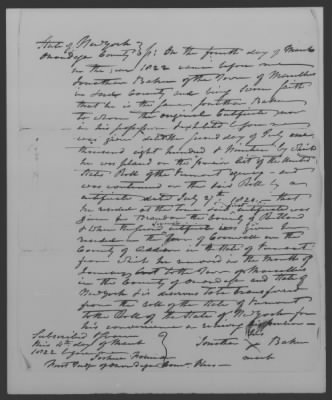 State of New york
Onondaga County } ss: On the fourth day of March
in the year 1822 came before me
Jonathan Baker of the Town of Marcellus
in said County and being sworn saith
that he is the same Jonathan Baker
to whom the original Certificate now
in his possession was
was given dated day of July one
thousand eight hundred & Nineteen by which
he was placed on the pension list of the United
States Roll of the Vermont agency - and
was continued on the said Roll by a
certificate dated July 1820, that
he resided at the
in Brandon the County of Rutland
& When the certificate was given he
resided in the Town of Cornwall in the
County of Addison in the State of Vermont
from which he removed in the month of
January to the Town of Marcellus
in the County of Onondaga and State of
New york & is desirous to be transferred
from the Roll of the State of Vermont
to the Roll of the State of New york for
his convenience in receiving his pension
Subscribed & Sworn
this 4th day of March
1822 before me
his
Jonathan X Baker
mark
First Judge of Onondaga Com. Pleas